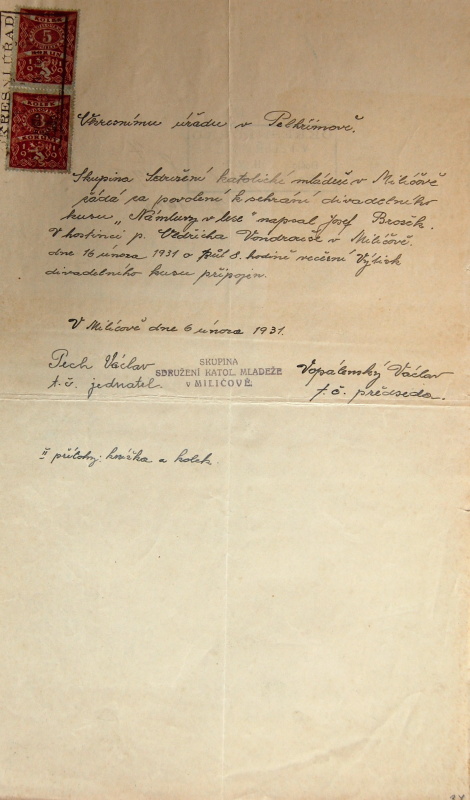 KRESNÍ ÚŘAD
KOLEK
5
KORUN
KOLEK
KORUN
Okresnímu úřadu v Pelhřimově.
Skupina Sdružení katolické mládeže v Milíčově
žádá za povolení k sehrání divadelního
kusu „Námluvy v lese" napsal Josef Brosek.
V hostinci p. Oldřicha Vondrouše v Milíčově.
dne 16 února 1931 o půl 8. hodině večerní Výtisk
divadelního kusu připojen.
V Milíčově dne 6 února 1931.
Pech Václav
t. č. jednatel.
SKUPINA
SDRUŽENÍ KATOL. MLADEŽE
V MILÍČOVĚ.
Vopálenský Václav
t. č. předseda.
II přílohy: knížka a kolek.